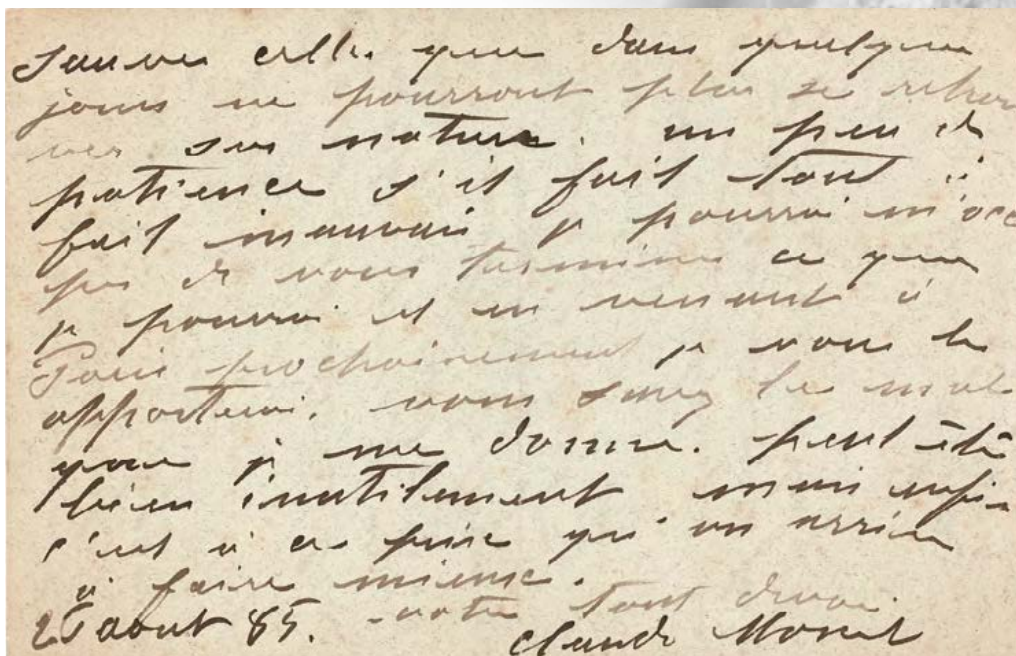 sauver celles que dans quelques
jours ne pourront plus se retrou
ver sur nature. un peu de
patience s'il fait tout à
fait mauvais je pourrai m'occu
per de vous terminer ce que
je pourrai et en venant à
Paris prochainement je vous les
apporterai. vous savez le mal
que je me donne. peut être
bien inutilement mais enfin
c'est à ce prix qu'on arrive
à faire mieux.
votre tout dévoué
25 aout 85. Claude Monet